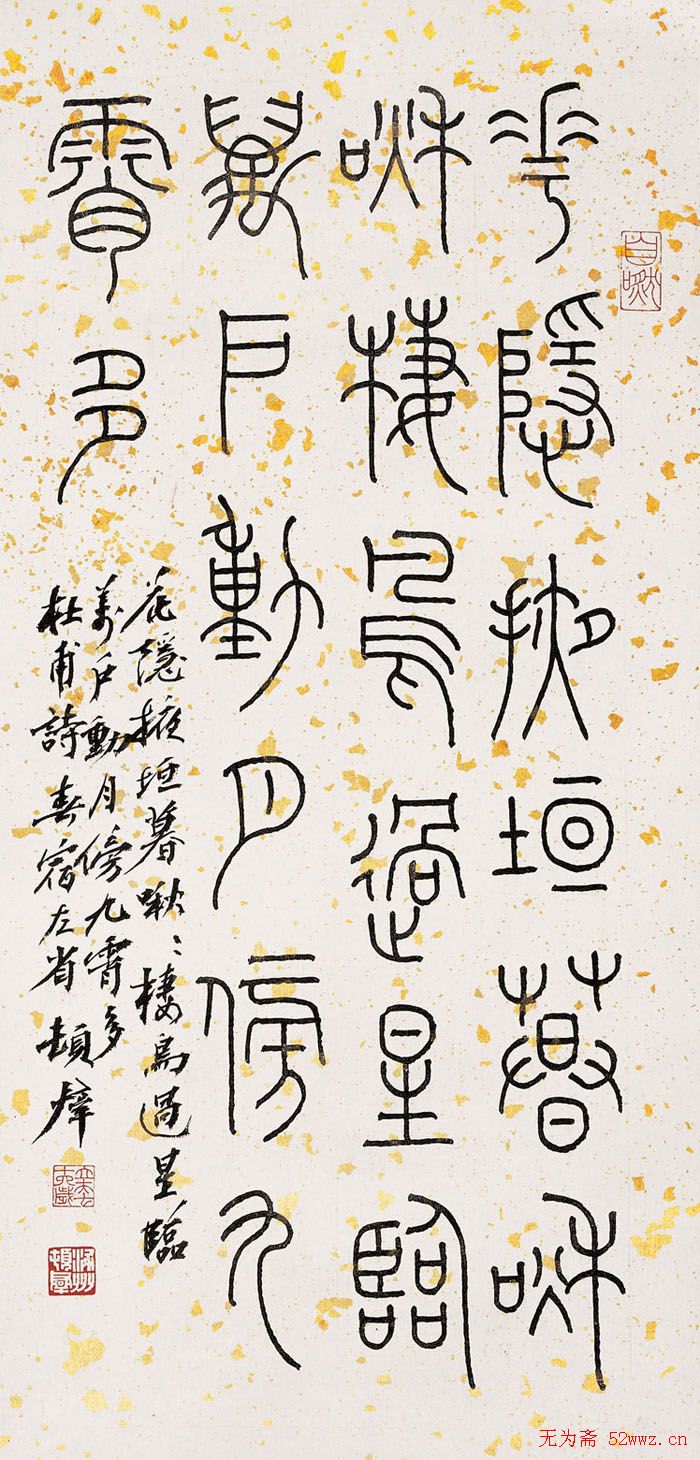 花隱掖垣暮啾
啾棲鳥過星臨
萬戶動月傍九
霄多
花隱掖垣暮啾〻棲鳥過星臨
萬戶動月傍九霄多
杜甫詩春宿左省 頓
无为斋 52wwz.cn